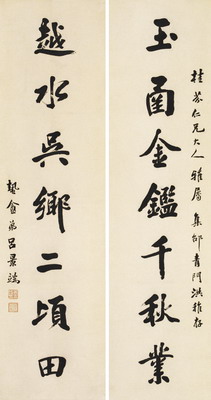 桂芬仁兄大人雅屬 集邵青門洪稚存
玉函金鑑千秋業
越水吳鄉二頃田
蟄盦弟呂景端